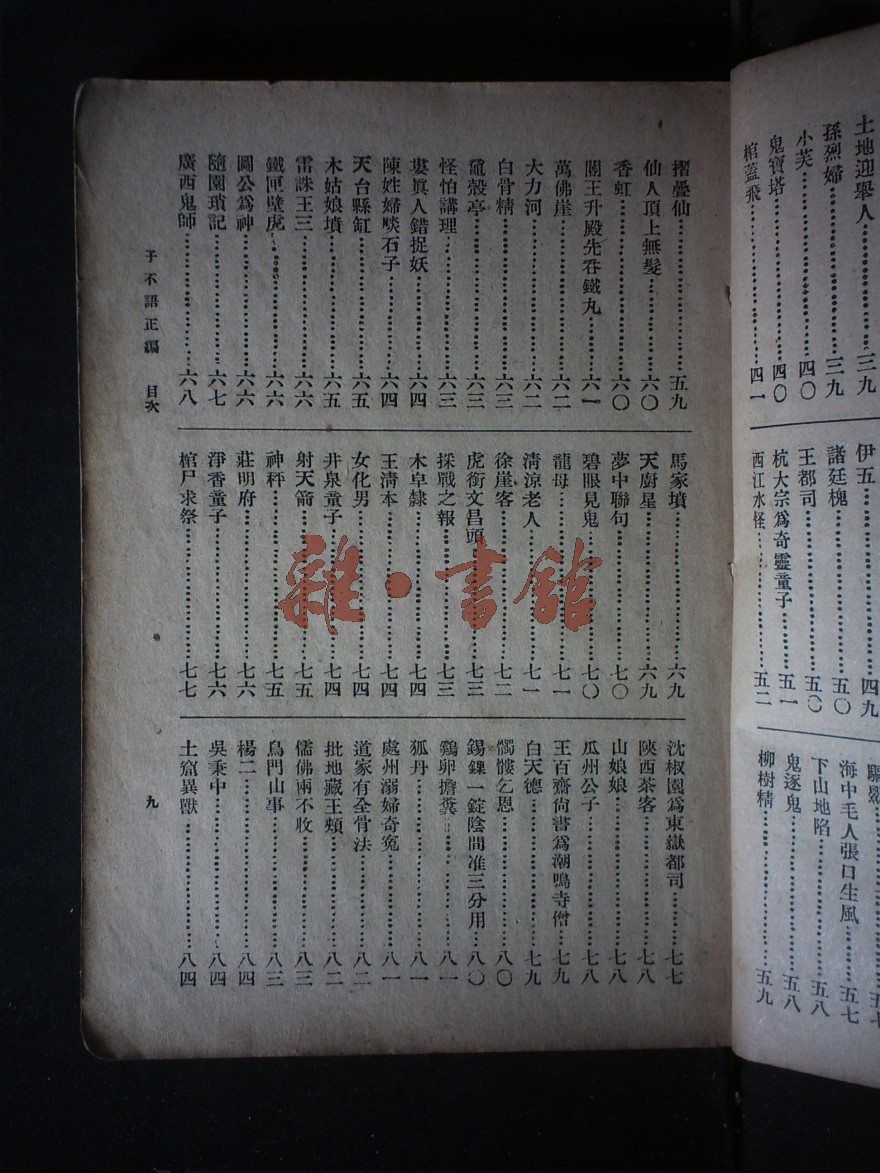 土地迎舉人……三九
孫烈婦……三九
小芙……四〇
鬼寶塔……四〇
棺蓋飛……四一
伊五……四九
諸廷槐……五〇
王都司……五〇
杭大宗爲奇靈童子……五一
西江水怪……五二
海中毛人張口生風……五七
下山地陷……五八
鬼逐鬼……五八
柳樹精……五九
摺疊仙……五九
仙人頂上無髮……六〇
香虹……六〇
閻王升殿先吞鐵丸……六一
萬佛崖……六二
大力河……六二
白骨精……六三
黿殼亭……六三
怪怕講理……六三
婁眞人錯捉妖……六四
陳姓婦啖石子……六四
天台縣缸……六五
木姑娘墳……六五
雷誅王三……六六
鐵匣壁虎……六六
圖公爲神……六六
隨園瑣記……六七
廣西鬼師……六八
馬家墳……六九
天廚星……六九
夢中聯句……七〇
碧眼見鬼……七〇
龍母……七一
清涼老人……七一
徐崖客……七二
虎銜文昌頭……七三
採戰之報……七三
木皁隸……七四
王清本……七四
女化男……七四
井泉童子……七四
射天箭……七五
神秤……七五
莊明府……七六
淨香童子……七六
棺尸求祭……七七
沈椒園爲東嶽都司……七七
陝西茶客……七八
山娘娘……七八
瓜州公子……七八
王百齋尙書爲潮鳴寺僧……七九
白天德……七九
髑髏乞恩……八〇
錫錁一錠陰間准三分用……八〇
鷄卵擔糞……八一
狐丹……八一
處州溺婦奇寃……八一
道家有全骨法……八二
批地藏王頰……八二
儒佛兩不收……八三
烏門山事……八三
楊二……八四
吳秉中……八四
土窟異獸……八四
子不語正編 目次
九
雜·書館